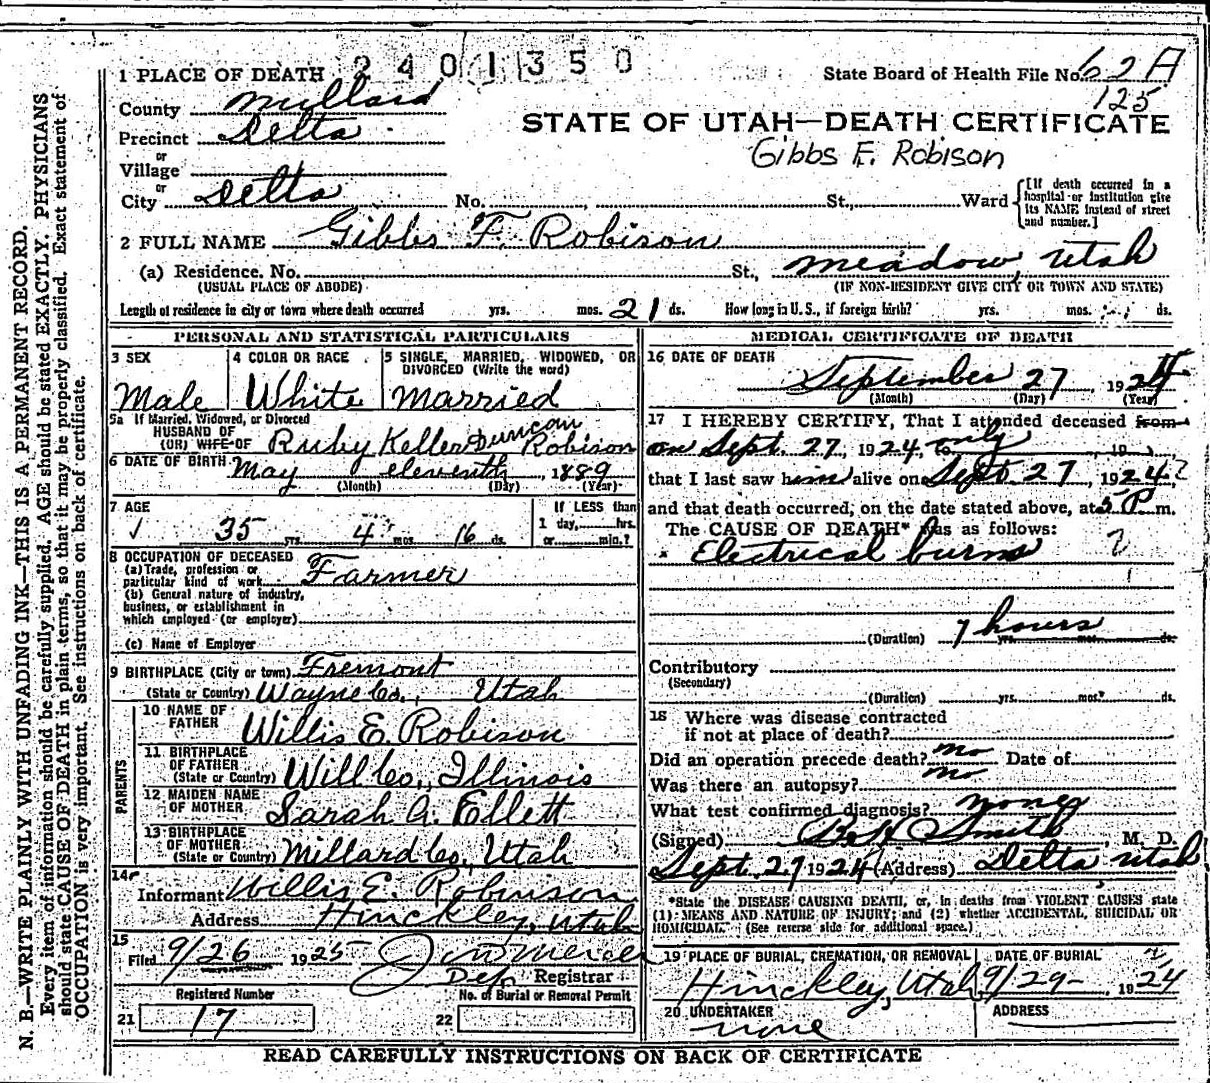 N. B.—WRITE PLAINLY WITH UNFADING INK—THIS IS A PERMANENT RECORD.
Every item of information should be carefully supplied. AGE should be stated EXACTLY. PHYSICIANS
should state CAUSE OF DEATH in plain terms, so that it may be properly classified. Exact statement of
OCCUPATION is very important. See instructions on back of certificate.
2401350
1 PLACE OF DEATH
State Board of Health File No. 62A
125
County Millard
STATE OF UTAH—DEATH CERTIFICATE
Precinct Delta
Gibbs F. Robison
or
Village
or
City Delta No. St., Ward
[If death occurred in a
hospital or institution give
its NAME instead of street
and number.]
2 FULL NAME Gibbs F. Robison
(a) Residence. No. St., Meadow, Utah
(USUAL PLACE OF ABODE) (IF NON-RESIDENT GIVE CITY OR TOWN AND STATE)
Length of residence in city or town where death occurred yrs. mos. 21 ds. How long in U.S., if foreign birth? yrs. mos. ds.
PERSONAL AND STATISTICAL PARTICULARS
3 SEX
Male
4 COLOR OR RACE
White
5 SINGLE, MARRIED, WIDOWED, OR
DIVORCED (Write the word)
Married
5a If Married, Widowed, or Divorced
HUSBAND OF
(OR) WIFE OF Ruby Keller Duncan Robison
6 DATE OF BIRTH May eleventh, 1889
(Month) (Day) (Year)
7 AGE
35 yrs. 4 mos. 16 ds.
If LESS than
1 day, hrs.
or min.?
8 OCCUPATION OF DECEASED
(a) Trade, profession or
particular kind of work Farmer
(b) General nature of industry,
business, or establishment in
which employed (or employer)
(c) Name of Employer
9 BIRTHPLACE (City or town) Fremont
(State or Country) Wayne Co., Utah
PARENTS
10 NAME OF
FATHER Willis E. Robison
11 BIRTHPLACE
OF FATHER
(State or Country) Will Co., Illinois
12 MAIDEN NAME
OF MOTHER Sarah A. Ellett
13 BIRTHPLACE
OF MOTHER
(State or Country) Millard Co, Utah
14
Informant Willis E. Robinson
Address Hinckley, Utah
15
Filed 9/26 1925
Dep Registrar
Registered Number
No. of Burial or Removal Permit
21 17
22
MEDICAL CERTIFICATE OF DEATH
16 DATE OF DEATH
September 27, 1924
(Month) (Day) (Year)
17 I HEREBY CERTIFY, That I attended deceased from
on Sept. 27, 1924, to only, 19
that I last saw him alive on Sept 27, 1924?
and that death occurred, on the date stated above, at 5 P. m.
The CAUSE OF DEATH* was as follows:
Electrical burns ?
(Duration) 7 hours yrs. mos. ds.
Contributory
(Secondary)
(Duration) yrs. mos. ds.
18 Where was disease contracted
if not at place of death?
Did an operation precede death? no Date of
Was there an autopsy? no
What test confirmed diagnosis? none
(Signed) Smith, M. D.
Sept. 27 1924 (Address) Delta, Utah
*State the DISEASE CAUSING DEATH, or, in deaths from VIOLENT CAUSES state
(1) MEANS AND NATURE OF INJURY; and (2) whether ACCIDENTAL, SUICIDAL OR
HOMICIDAL. (See reverse side for additional space.)
19 PLACE OF BURIAL, CREMATION, OR REMOVAL
Hinckley, Utah
DATE OF BURIAL
9/29 - 1924
20 UNDERTAKER
none
ADDRESS
READ CAREFULLY INSTRUCTIONS ON BACK OF CERTIFICATE